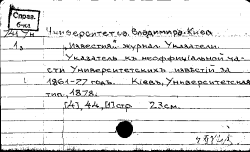 Справ.
б-ка
Университет св. Владимира. Киев
"Известия." журнал. Указатели.
Указатель къ неоффиціальной ча-
сти Университетских извѣстій за
1861-77 годъ. Кіевъ, Университетская
тип., 1878.
[4], 44, [1] стр. 23см.